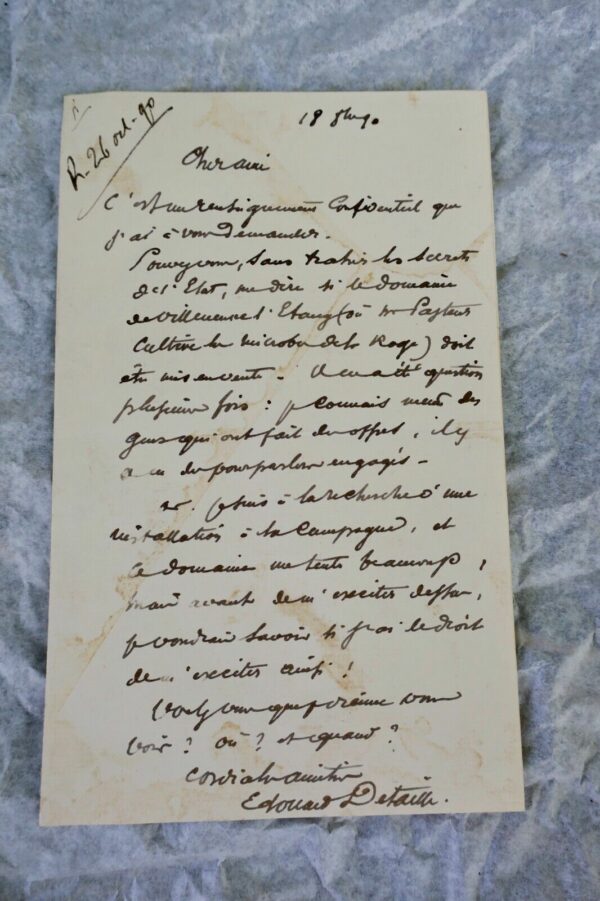 R. 26 oct. 90
18 8bre 90
Cher ami
C'est un renseignement confidentiel que
j'ai à vous demander.
Pouvez vous, sans trahir les secrets
de l'Etat, me dire si le domaine
de Villeneuve l'Etang (où Mr Pasteur
cultive le microbe de la Rage) doit
être mis en vente. Il en a été question
plusieurs fois : je connais même des
gens qui ont fait des offres, il y
a eu des pourparlers engagés -
je suis à la recherche d'une
installation à la campagne, et
ce domaine me tente beaucoup,
mais avant de m'exciter dessus,
je voudrais savoir si j'ai le droit
de m'exciter ainsi !
Voulez vous que je vienne vous
voir ? où ? et quand ?
Cordiale amitié
Edouard Detaille.